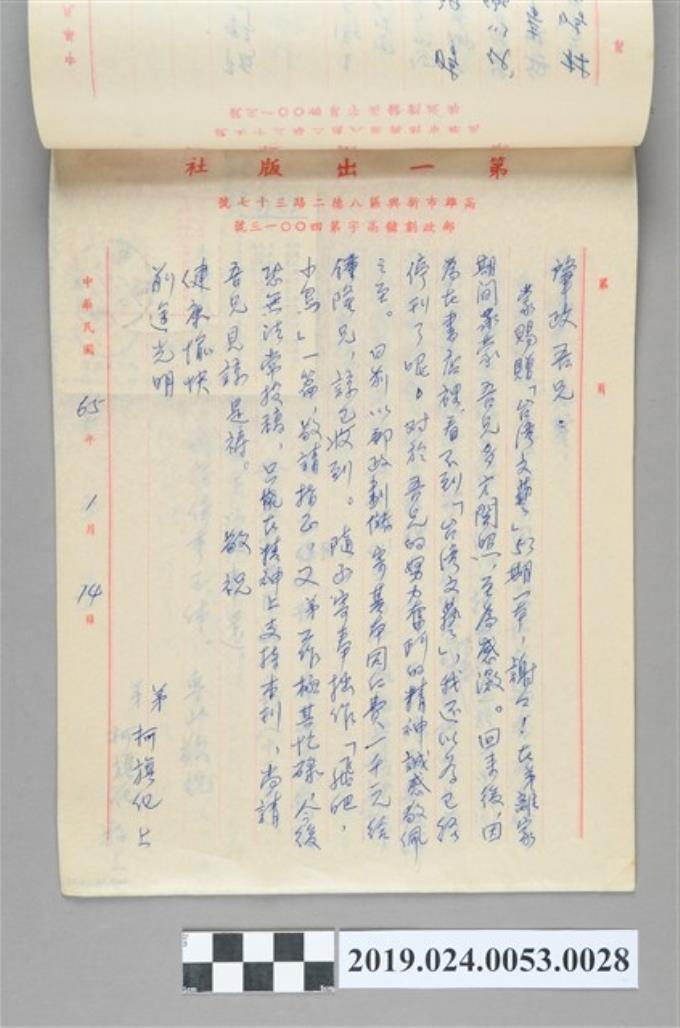 第一出版社
高雄市新興區八德二路三十七號
郵政劃儲高字第四〇〇一三號
第 頁
肇政吾兄：
蒙賜贈「台湾文藝」50期一本，謝々！在弟離家
期间承蒙 吾兄多方関照，至為感激。回来後，因
為在書店裡看不到「台湾文藝」，我还以為已経
停刊了呢。对於吾兄的努力奮鬥的精神誠感敬佩
之至。日前以郵政劃儲寄基本同仁費一千元給
鍾隆兄，諒已收到。隨函寄奉拙作「飛吧，
小鳥」一篇，敬請指正。又弟工作極其忙碌，今後
恐無法常投稿，只能在精神上支持本刊，尚請
吾兄見諒是禱。 敬祝
健康愉快
前途光明
弟 柯旗化 上
中華民國 65 年 1 月 14 日
2019.024.0053.0028